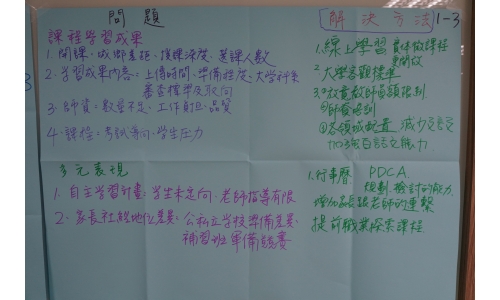 問題
課程學習成果
1. 開課：城鄉差距、授課深度、選課人數
2. 學習成果內容：上傳時間、準備程度、大學科系
審查標準及取向
3. 師資：數量不足、工作負担、品質
4. 課程：考試導向、學生压力
多元表現
1. 自主學習計畫：學生未定向、老師指導有限
2. 家長社經地位差異、公私立學校準備差異、
補習班軍備競賽
解決方法 1-3
1. 線上學習 實体做課程
2. 大學客觀標準
3. 放寬教師員額限制
師資培訓
各領域配置 減少文言文
加強白話文能力
1. 行事曆 PDCA
規劃、檢討的能力
增加家長跟老師的連繫
提前職業探索課程